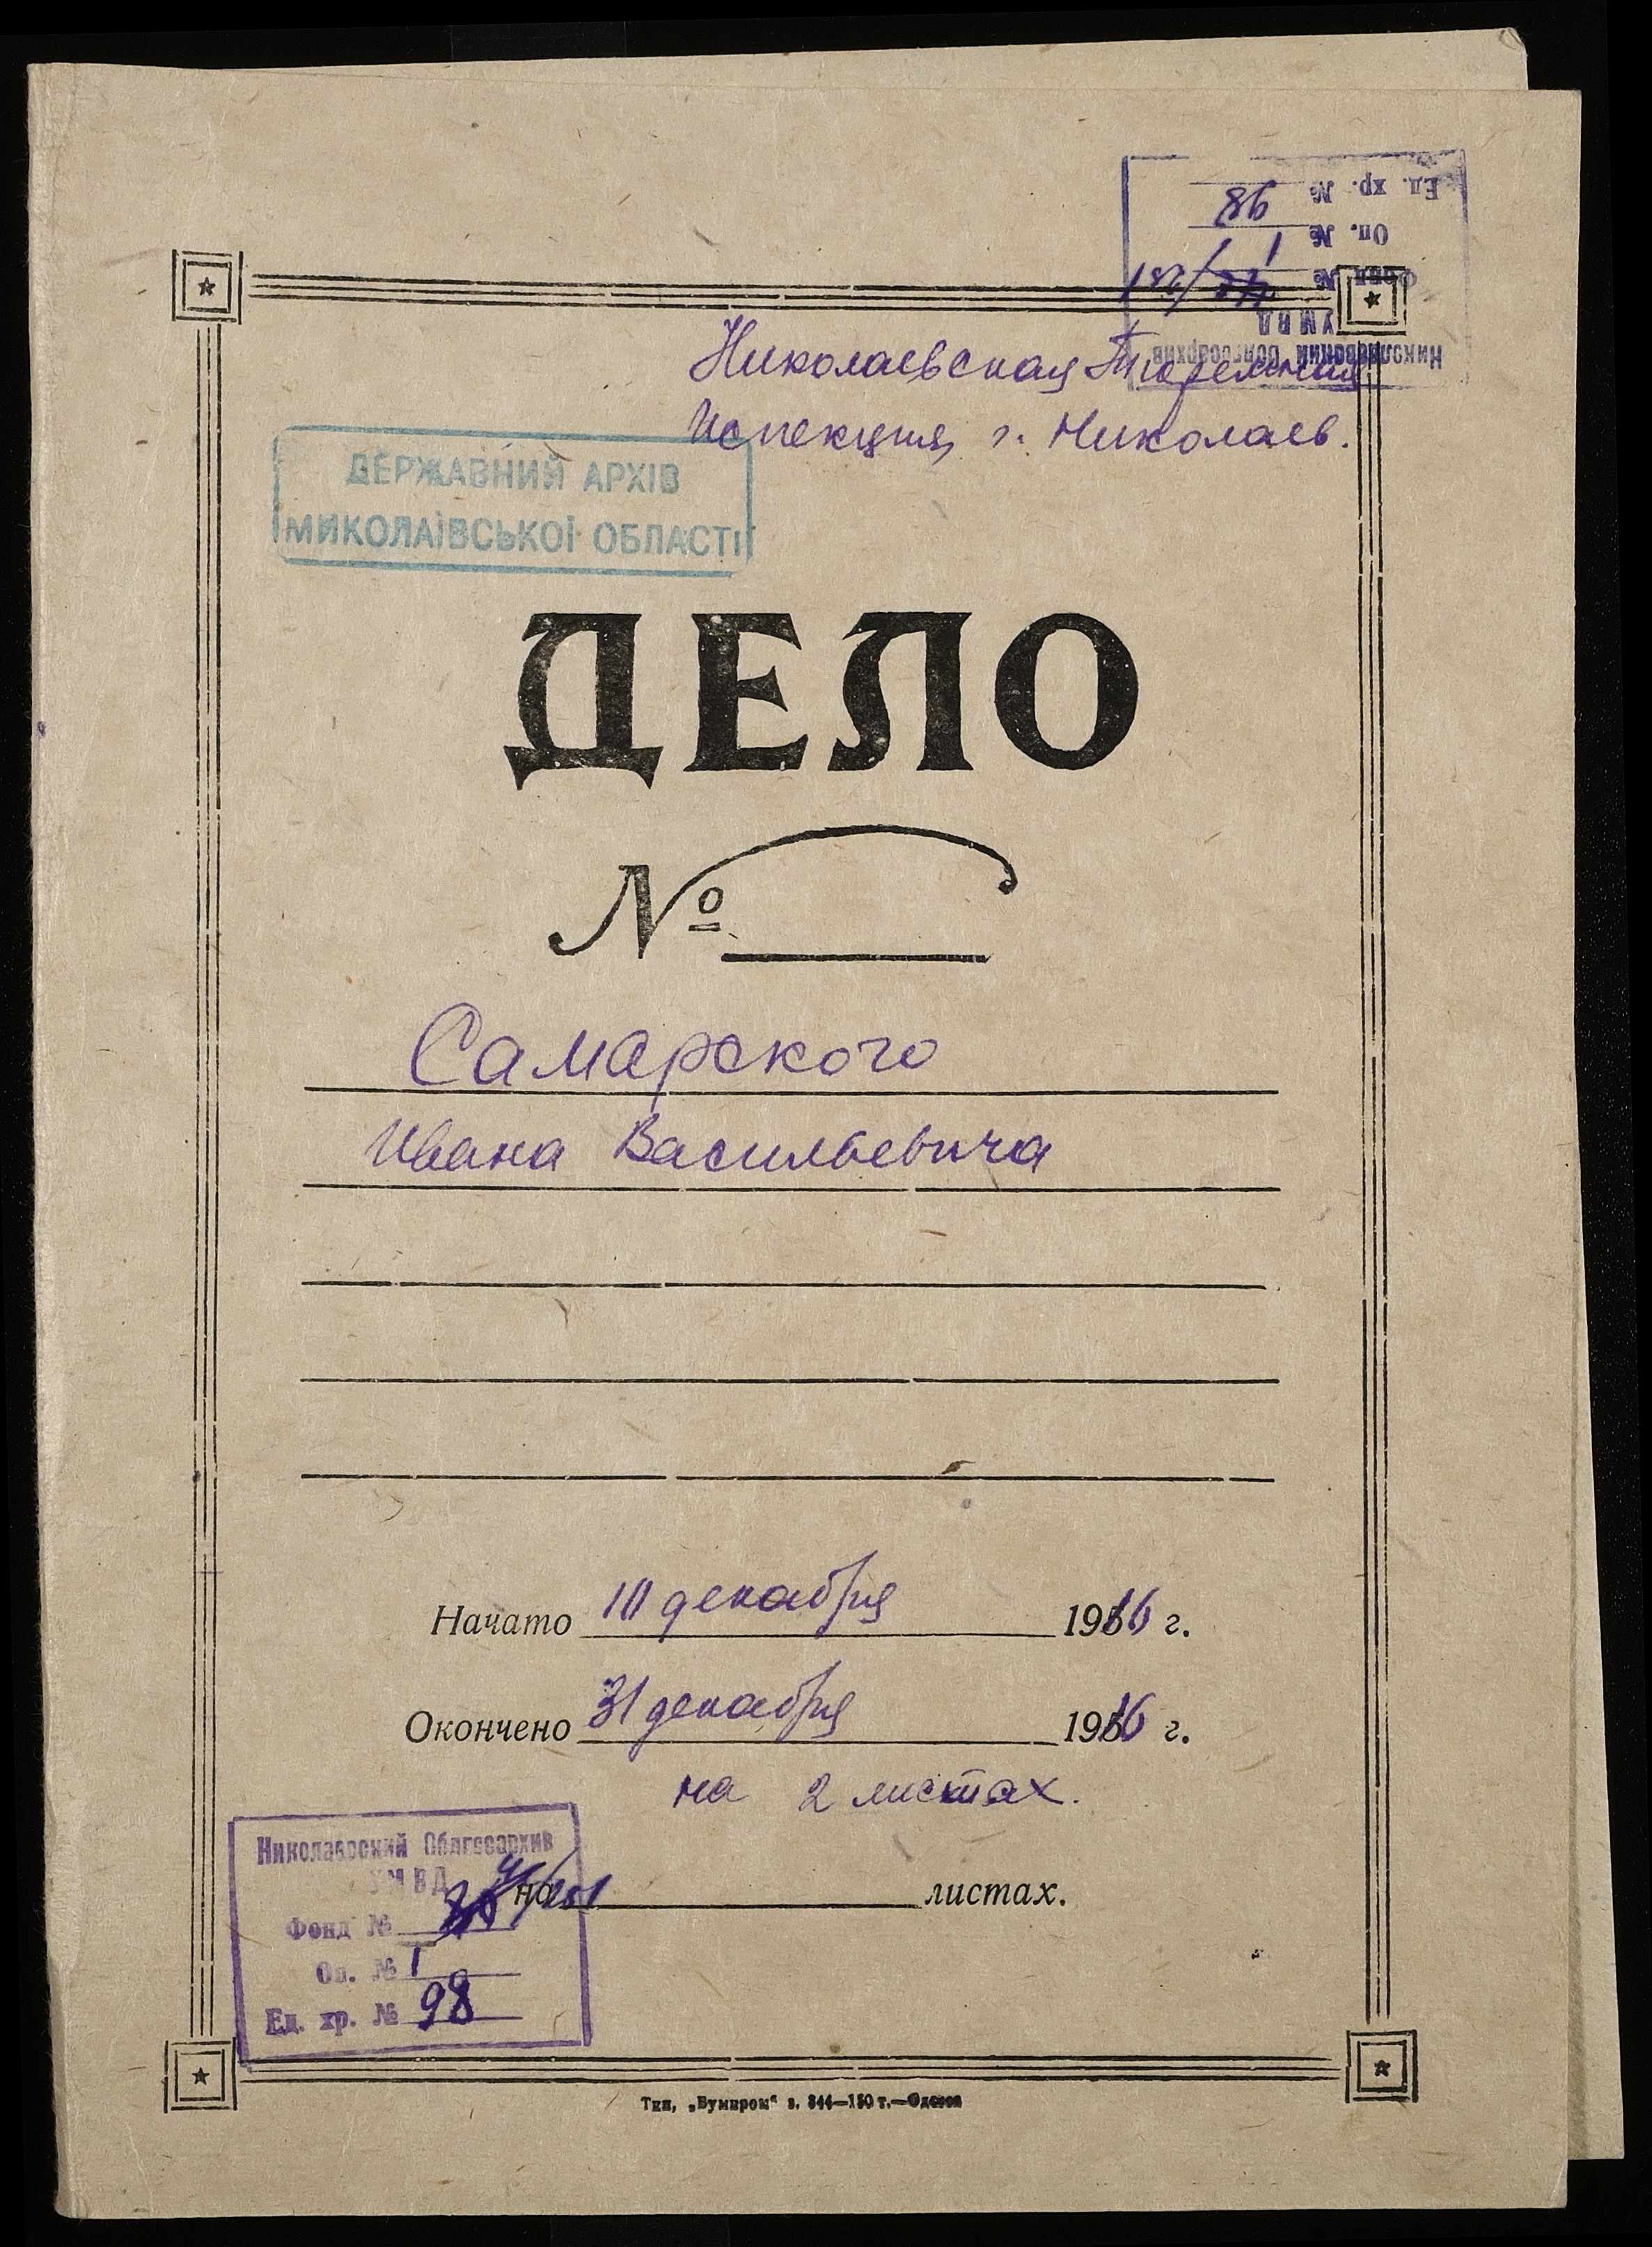 Ед. хр. № 98
Оп. № 1
Фонд № /281
УМВД
Николаевский Облгосархив
Николаевская Тюремная
Испекция г. Николаев.
ДЕРЖАВНИЙ АРХІВ
МИКОЛАЇВСЬКОЇ ОБЛАСТІ
ДЕЛО
№
Самарского
Ивана Васильевича
Начато 10 декабря 1916 г.
Окончено 31 декабря 1916 г.
на 2 листах.
Николаевский Облгосархив
УМВД
на листах.
Фонд №
Оп. № 1
Ед. хр. № 98
Тип. „Бумпром“ з. 344—150 т.—Одесса